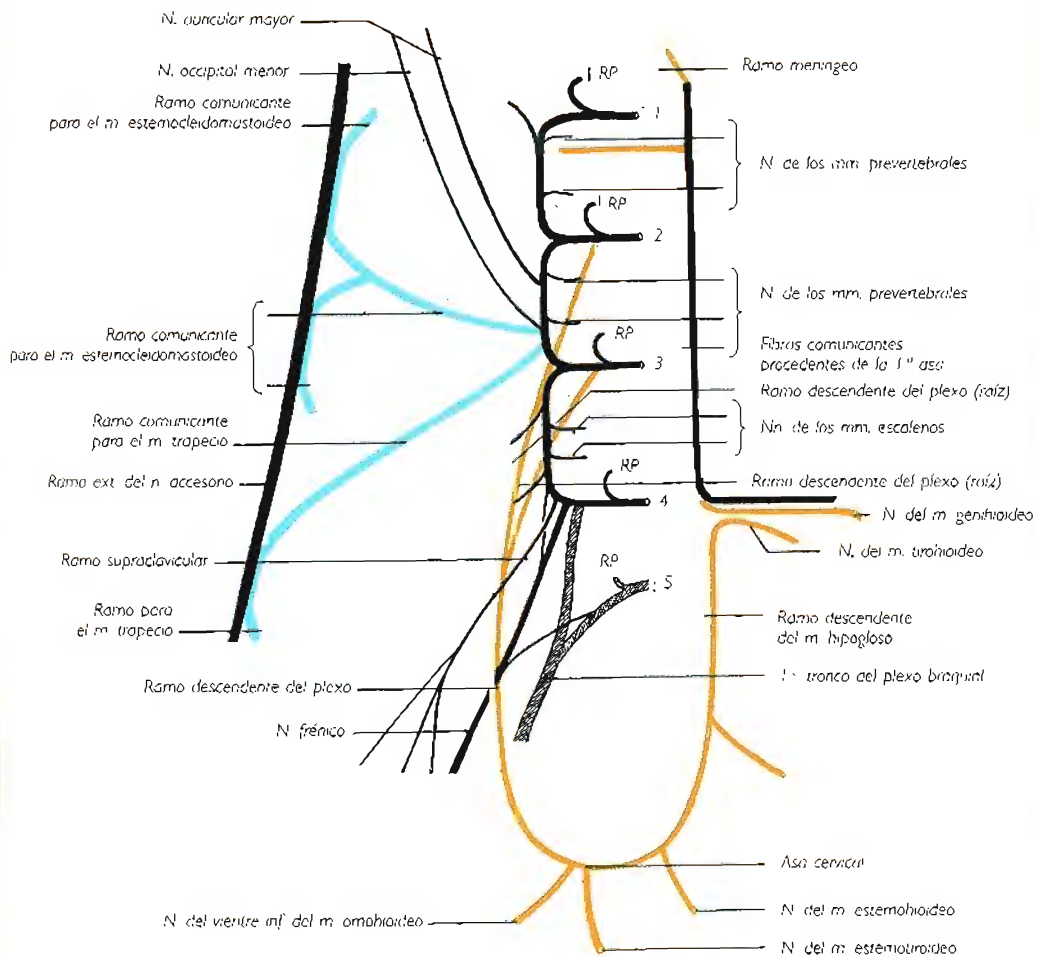 N. auricular mayor
N. occipital menor
Ramo comunicante
para el m estemocleidomastoideo
Ramo comunicante
para el m estemocleidomastoideo
Ramo comunicante
para el m trapecio
Ramo ext. del n accesorio
Ramo supraclavicular
Ramo para
el m trapecio
Ramo descendente del plexo
N frénico
N del vientre inf del m omohioideo
RP
1
RP
2
RP
3
RP
4
RP
5
Ramo meníngeo
N de los mm prevertebrales
N de los mm. prevertebrales
Fibras comunicantes
procedentes de la 1ª asa
Ramo descendente del plexo (raíz)
Nn de los mm. escalenos
Ramo descendente del plexo (raíz)
N del m genihioideo
N. del m. tirohioideo
Ramo descendente
del m hipogloso
tronco del plexo braquial
Asa cervical
N del m estemohioideo
N del m estemotiroideo